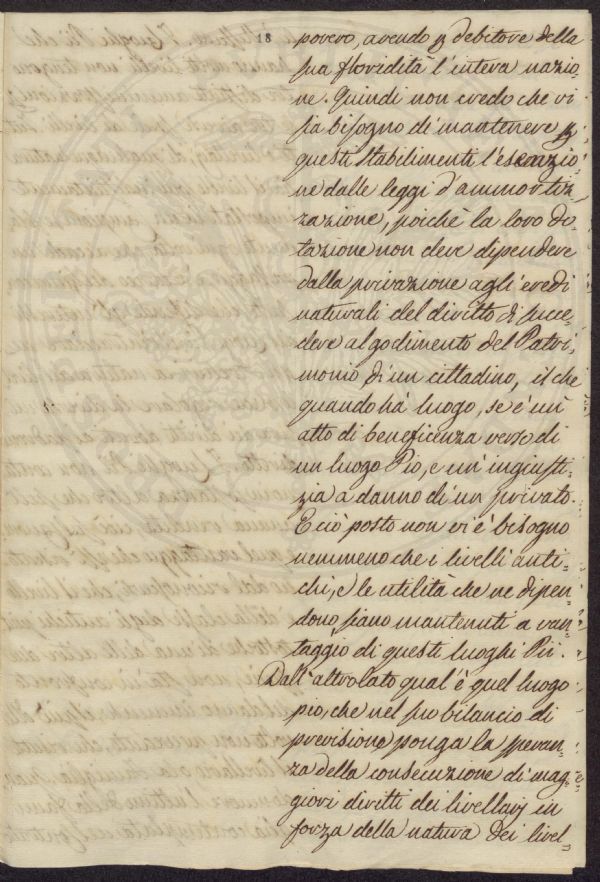 18
povero, avendo p debitore della
sua floridità l'intera nazio-
ne. Quindi non credo che vi
sia bisogno di mantenere p
questi stabilimenti l'esenzio
ne dalle leggi d'ammortiz
zazione, poichè la loro do
tazione non deve dipendere
dalla privazione agli eredi
naturali del diritto di succe-
dere al godimento del Patri-
monio di un cittadino, il che
quando hà luogo, se è un
atto di beneficenza verso di
un luogo Pio, è un'ingiusti-
zia a danno di un privato.
E ciò posto non vi è bisogno
nemmeno che i livelli anti-
chi, e le utilità che ne dipen-
dono siano mantenuti a van-
taggio di questi luoghi Pii.
Dall'altro lato qual'è quel luogo
pio, che nel suo bilancio di
previsione ponga la speran-
za della consecuzione di mag-
giori diritti dei livellarj in
forza della natura dei livel-